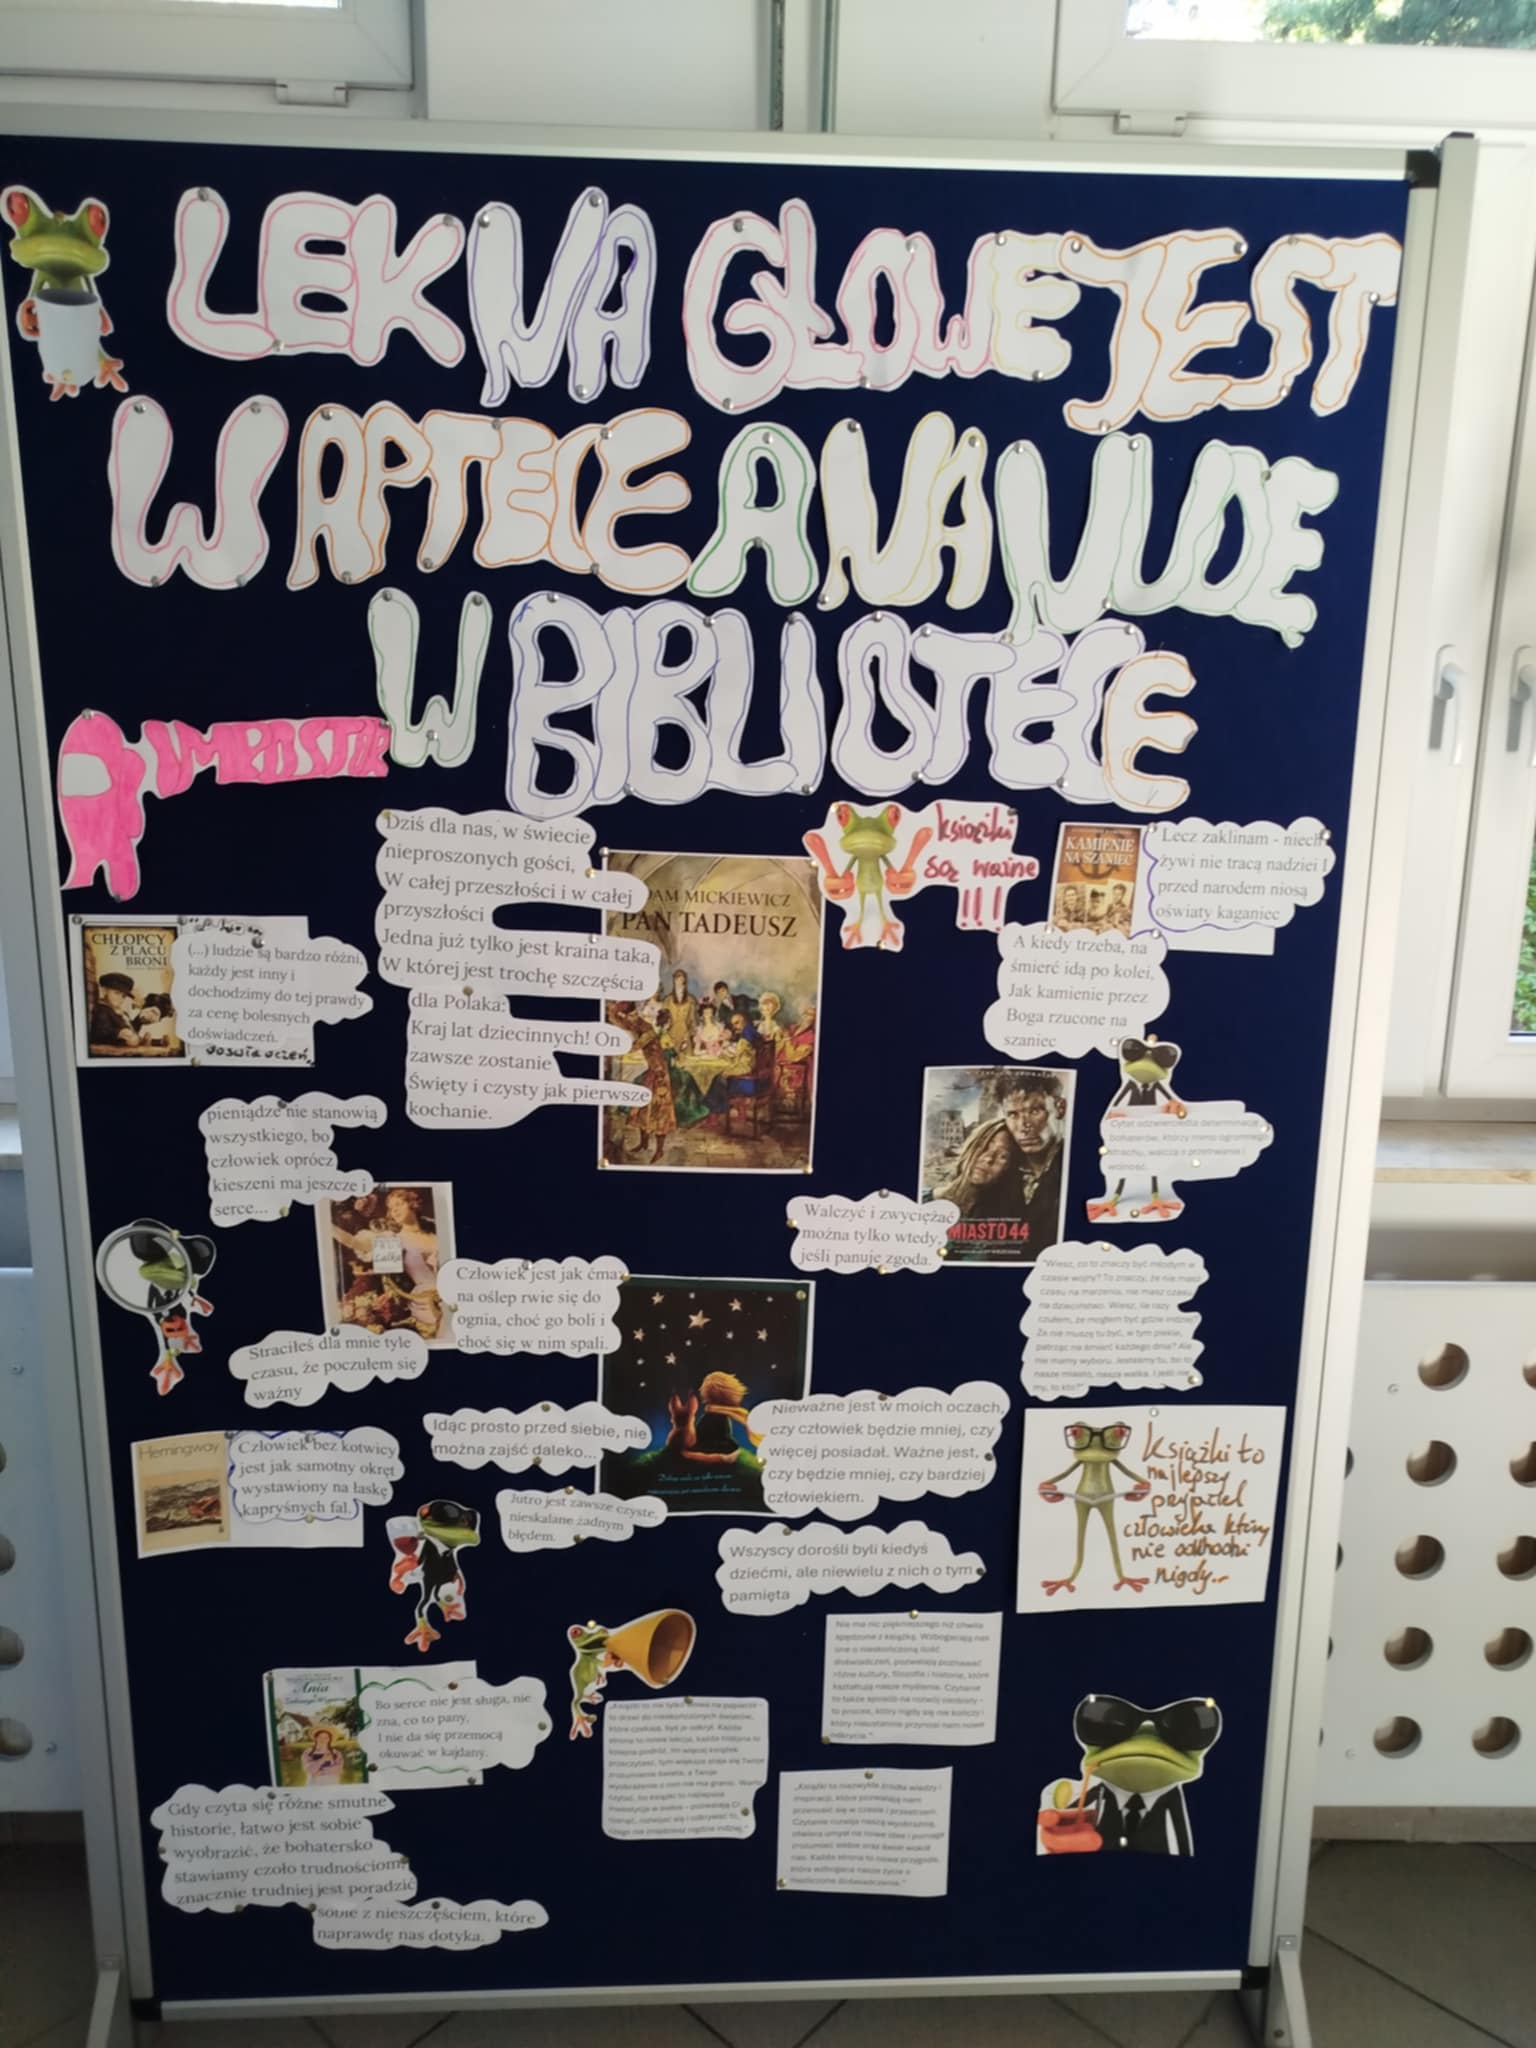 LEK NA GŁOWE JEST
W APTECE A NA NUDE
W BIBLIOTECE
IMPOSTOR
Dziś dla nas, w świecie
nieproszonych gości,
W całej przeszłości i w całej
przyszłości
Jedna już tylko jest kraina taka,
W której jest trochę szczęścia
dla Polaka:
Kraj lat dziecinnych! On
zawsze zostanie
Święty i czysty jak pierwsze
kochanie.
ADAM MICKIEWICZ
PAN TADEUSZ
książki
są ważne
!!!
KAMIENIE
NA SZANIEC
Lecz zaklinam - niech
żywi nie tracą nadziei I
przed narodem niosą
oświaty kaganiec
A kiedy trzeba, na
śmierć idą po kolei,
Jak kamienie przez
Boga rzucone na
szaniec
CHŁOPCY
Z PLACU
BRONI
(...) ludzie są bardzo różni,
każdy jest inny i
dochodzimy do tej prawdy
za cenę bolesnych
doświadczeń.
doświadczeń.
pieniądze nie stanowią
wszystkiego, bo
człowiek oprócz
kieszeni ma jeszcze i
serce...
Lalka
Człowiek jest jak ćma:
na oślep rwie się do
ognia, choć go boli i
choć się w nim spali.
Straciłeś dla mnie tyle
czasu, że poczułem się
ważny
Cytat odzwierciedla determinację
bohaterów, którzy mimo ogromnego
strachu, walczą o przetrwanie i
wolność.
MIASTO 44
Walczyć i zwyciężać
można tylko wtedy,
jeśli panuje zgoda.
"Wiesz, co to znaczy być młodym w
czasie wojny? To znaczy, że nie masz
czasu na marzenia, nie masz czasu
na dzieciństwo. Wiesz, ile razy
czułem, że mogłem być gdzie indziej?
Że nie muszę tu być, w tym piekle,
patrząc na śmierć każdego dnia? Ale
nie mamy wyboru. Jesteśmy tu, bo to
nasze miasto, nasza walka. I jeśli nie
my, to kto?"
Idąc prosto przed siebie, nie
można zajść daleko...
Nieważne jest w moich oczach,
czy człowiek będzie mniej, czy
więcej posiadał. Ważne jest,
czy będzie mniej, czy bardziej
człowiekiem.
Jutro jest zawsze czyste,
nieskalane żadnym
błędem.
Wszyscy dorośli byli kiedyś
dziećmi, ale niewielu z nich o tym
pamięta
Hemingway
Człowiek bez kotwicy
jest jak samotny okręt
wystawiony na łaskę
kapryśnych fal.
Książki to
najlepszy
przyjaciel
człowieka który
nie odchodzi
nigdy...
Nie ma nic piękniejszego niż chwila
spędzona z książką. Wzbogacają nas
one o nieskończoną ilość
doświadczeń, pozwalają poznawać
różne kultury, filozofie i historie, które
kształtują nasze myślenie. Czytanie
to także sposób na rozwój osobisty –
to proces, który nigdy się nie kończy i
który nieustannie przynosi nam nowe
odkrycia."
Ania
z Zielonego Wzgórza
Bo serce nie jest sługa, nie
zna, co to pany,
I nie da się przemocą
okuwać w kajdany.
Gdy czyta się różne smutne
historie, łatwo jest sobie
wyobrazić, że bohatersko
stawiamy czoło trudnościom,
znacznie trudniej jest poradzić
sobie z nieszczęściem, które
naprawdę nas dotyka.
„Książki to nie tylko słowa na papierze –
to drzwi do nieskończonych światów,
które czekają, by je odkryć. Każda
strona to nowa lekcja, każda historia to
kolejna podróż. Im więcej książek
przeczytasz, tym większe staje się Twoje
zrozumienie świata, a Twoja
wyobraźnia z nim nie ma granic. Warto
czytać, bo książki to najlepsza
inwestycja w siebie – pozwalają Ci
„Książki to niezwykłe źródła wiedzy i
inspiracji, które pozwalają nam
przenosić się w czasie i przestrzeni.
Czytanie rozwija naszą wyobraźnię,
otwiera umysł na nowe idee i pomaga
zrozumieć siebie oraz świat wokół
nas. Każda strona to nowa przygoda,
która wzbogaca nasze życie o
niezliczone doświadczenia."